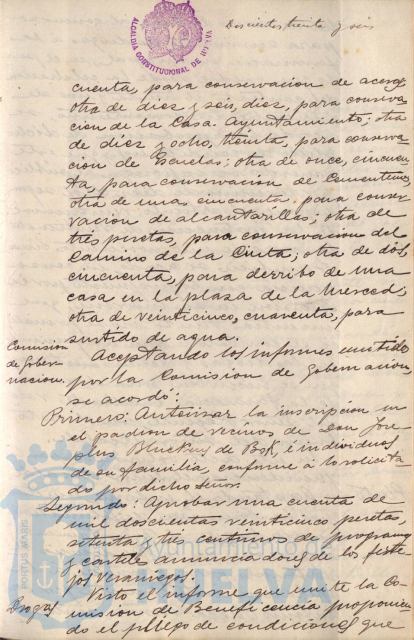 ALCALDIA CONSTITUCIONAL DE HUELVA
Doscientos treinta y seis
cuenta, para conservacion de aceras
otra de diez y seis, diez, para conserva-
cion de la Casa Ayuntamiento; otra
de diez y ocho, treinta, para conserva-
cion de Escuelas; otra de once, cincuen-
ta, para conservacion de Cementerios,
otra de una cincuenta para conser-
vacion de alcantarillas; otra de
tres pesetas, para conservacion del
Camino de la Cinta; otra de dos,
cincuenta, para derribo de una
casa en la plaza de la Merced;
otra de veinticinco, cuarenta, para
surtido de agua.
Comision
de Gober-
nacion.
Aceptando los informes emitidos
por la Comision de Gobernacion,
se acordó:
Primero: Autorizar la inscripcion en
el padron de vecinos de Don Jose-
phus de é individuos
de su familia, conforme á lo solicita-
do por dicho Señor.
Segundo: Aprobar una cuenta de
mil doscientas veinticinco pesetas,
setenta y tres centimos de programas
y carteles anunciadores de los feste-
jos Veraniegos.
Drogas
Visto el informe que emite la Co-
mision de Beneficencia proponien-
do el pliego de condiciones que
PORTUS MARIS
Ayuntamiento de
HUELVA